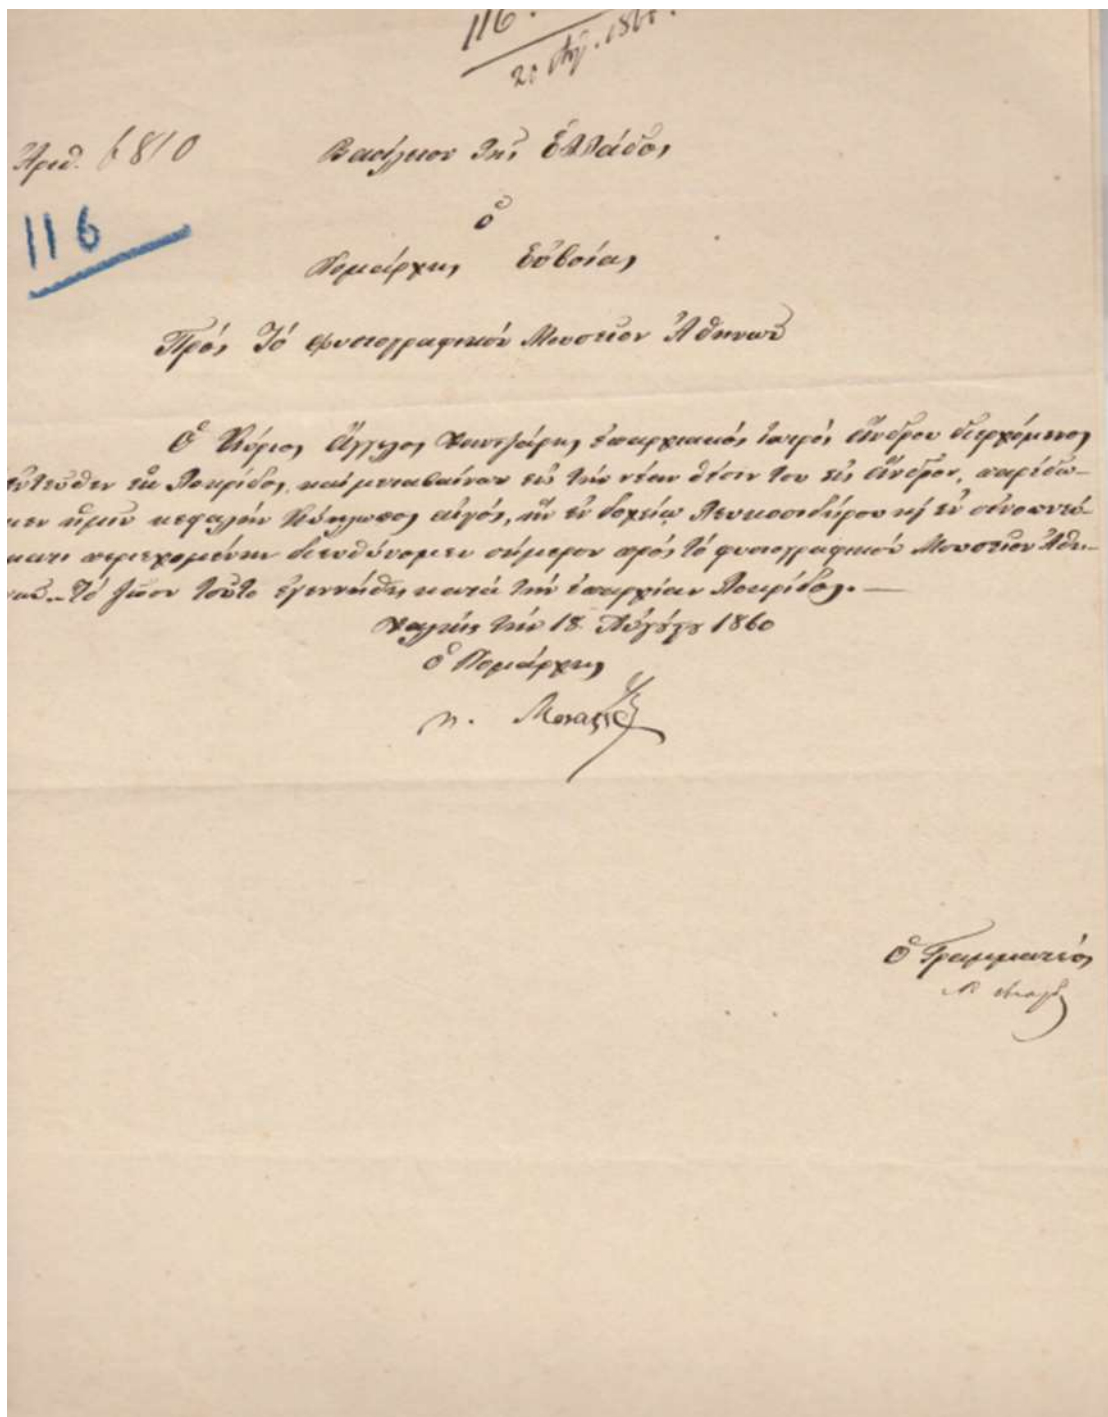 116.
20 Αὐγ. 1860.
Ἀριθ. 6810
Βασίλειον τῆς Ἑλλάδος
116
ὁ
Νομάρχης Εὐβοίας
Πρός τό φυσιογραφικόν Μουσεῖον Ἀθηνῶν
Ὁ Κύριος Ἄγγελος ἐπαρχιακός ἰατρός Ἄνδρου διερχόμενος
ἐντεῦθεν ἐκ Λοκρίδος, καί μεταβαίνων εἰς τήν νέαν θέσιν του εἰς Ἄνδρον, παρέδω-
κεν ἡμῖν κεφαλήν Κύκλωπος αἰγός, ἥν ἐν δοχείῳ λευκοσιδήρου κ ἐν οἰνοπνεύ-
ματι περιεχομένην διευθύνομεν σήμερον πρός τό φυσιογραφικόν Μουσεῖον Ἀθη-
νῶν. Τό ζῶον τοῦτο ἐγεννήθη κατά τήν ἐπαρχίαν Λοκρίδος. —
Χαλκίς τήν 18 Αὐγούστου 1860
ὁ Νομάρχης
ὁ Γραμματεύς